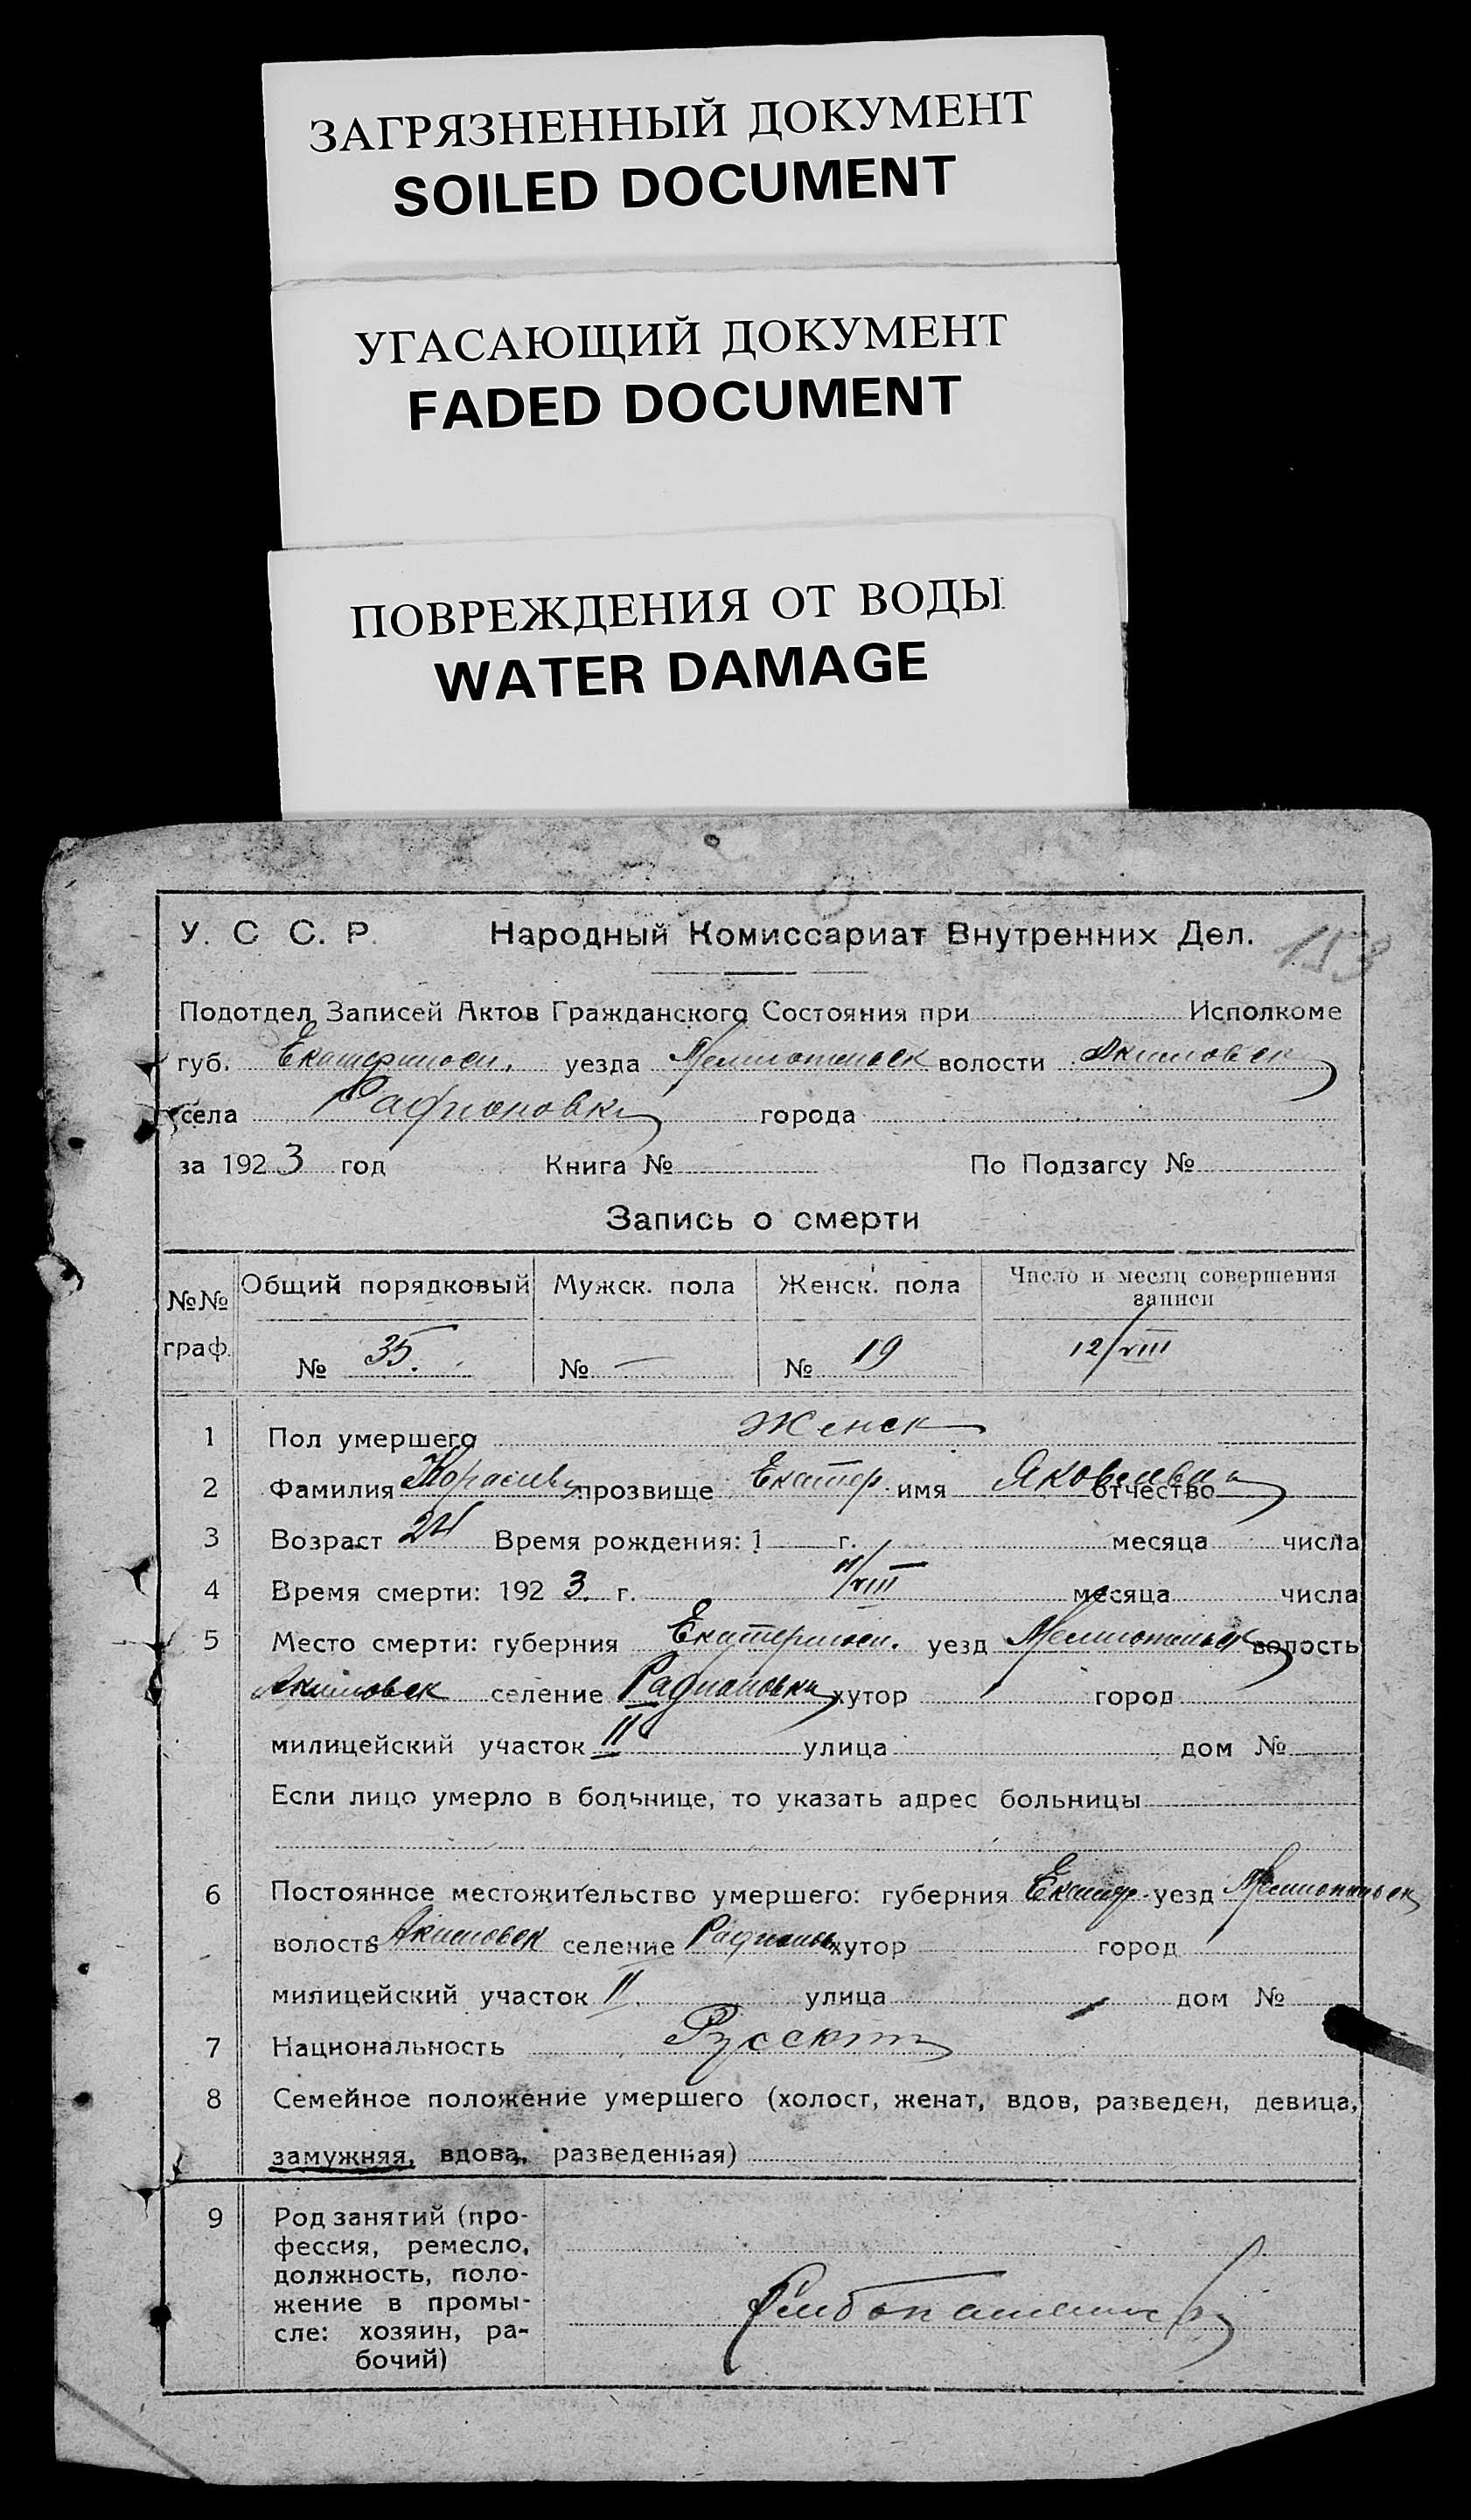 ЗАГРЯЗНЕННЫЙ ДОКУМЕНТ
SOILED DOCUMENT
УГАСАЮЩИЙ ДОКУМЕНТ
FADED DOCUMENT
ПОВРЕЖДЕНИЯ ОТ ВОДЫ
WATER DAMAGE
У. С С. Р. Народный Комиссариат Внутренних Дел. 153
Подотдел Записей Актов Гражданского Состояния при Исполкоме
губ. Екатериносл. уезда Мелитопольск волости Акимовск
села Радионовки города
за 1923 год Книга № По Подзагсу №
Запись о смерти
№№ граф. Общий порядковый Мужск. пола Женск. пола Число и месяц совершения записи
№ 35. № — № 19 12/VIII
1 Пол умершего Женск
2 Фамилия прозвище Екатер. имя Яковлевна отчество
3 Возраст 24 Время рождения: 1 г. месяца числа
4 Время смерти: 1923. г. 11/VIII месяца числа
5 Место смерти: губерния Екатериносл. уезд Мелитопольск волость
Акимовск селение Радионовка хутор город
милицейский участок II улица дом №
Если лицо умерло в больнице, то указать адрес больницы
6 Постоянное местожительство умершего: губерния Екатер. уезд Мелитопольск
волость Акимовск селение Радионов хутор город
милицейский участок II. улица дом №
7 Национальность Русская
8 Семейное положение умершего (холост, женат, вдов, разведен, девица,
замужняя, вдова, разведенная)
9 Род занятий (про-
фессия, ремесло,
должность, поло-
жение в промы-
сле: хозяин, ра-
бочий)